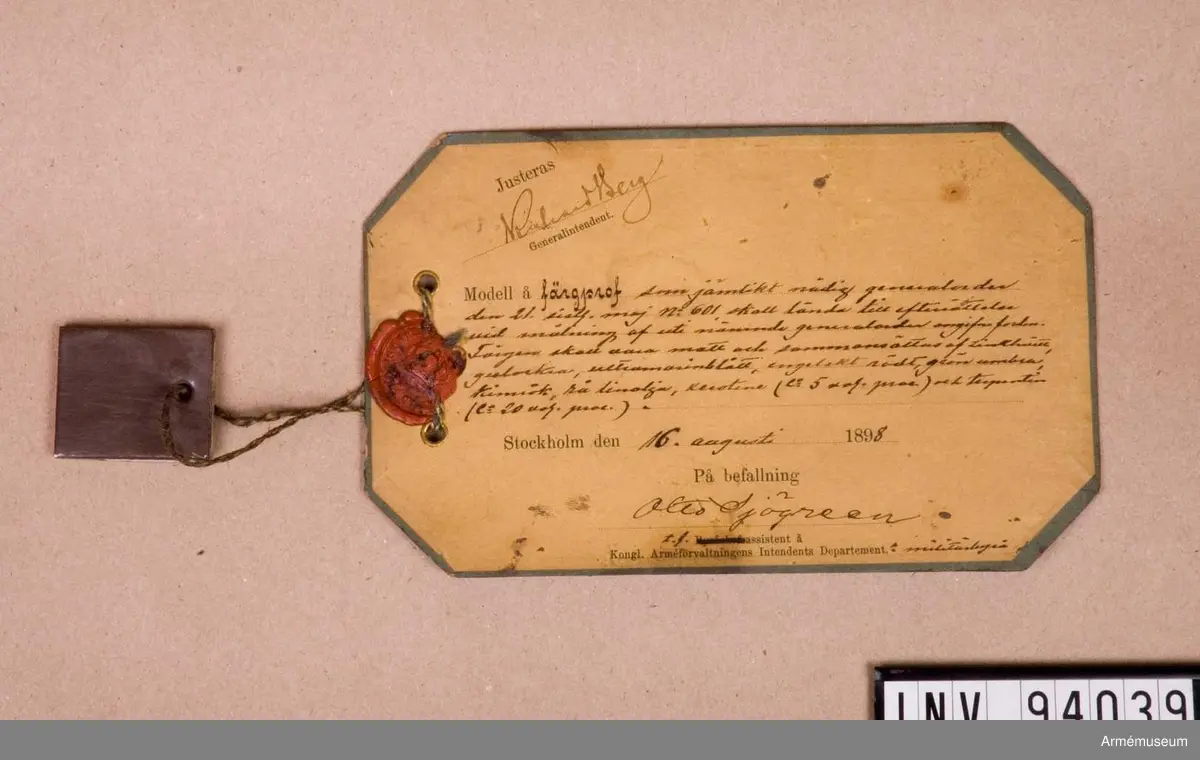 Justeras
Berg
Generalintendent.
Modell å färgprof som jämlikt nådig generalorder
den 21. sistl. maj No 601 skall lända till efterrättelse
vid målning af uti nämnde generalorder angifna fordon.
Färgen skall vara matt och sammansättas af zinkhvitt,
guldockra, ultramarinblått, engelskt rödt, grön umbra,
kimrök, rå linolja, kerotine (5 vol. proc.) och terpentin
(20 vol. proc.)
Stockholm den 16. augusti 1898
På befallning
Otto Sjögreen
t.f. assistent å
Kongl. Arméförvaltningens Intendents Departement.
INV 94039
Armémuseum